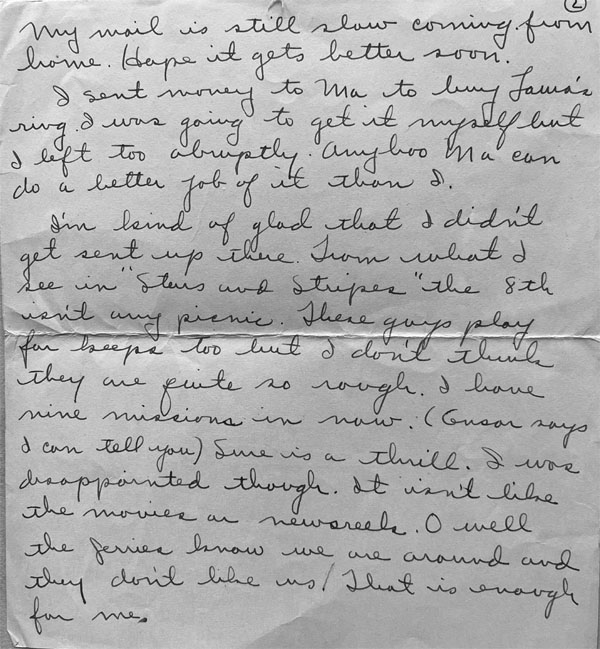 2
My mail is still slow coming from
home. Hope it gets better soon.
I sent money to Ma to buy
ring. I was going to get it myself but
I left too abruptly. Anyhoo Ma can
do a better job of it than I.
I'm kind of glad that I didn't
get sent up there. From what I
see in "Stars and Stripes" the 8th
isn't any picnic. These guys play
for keeps too but I don't think
they are quite so rough. I have
nine missions in now. (Censor says
I can tell you) Sure is a thrill. I was
disappointed though. It isn't like
the movies or newsreels. O well
the Jerries know we are around and
they don't like us! That is enough
for me.